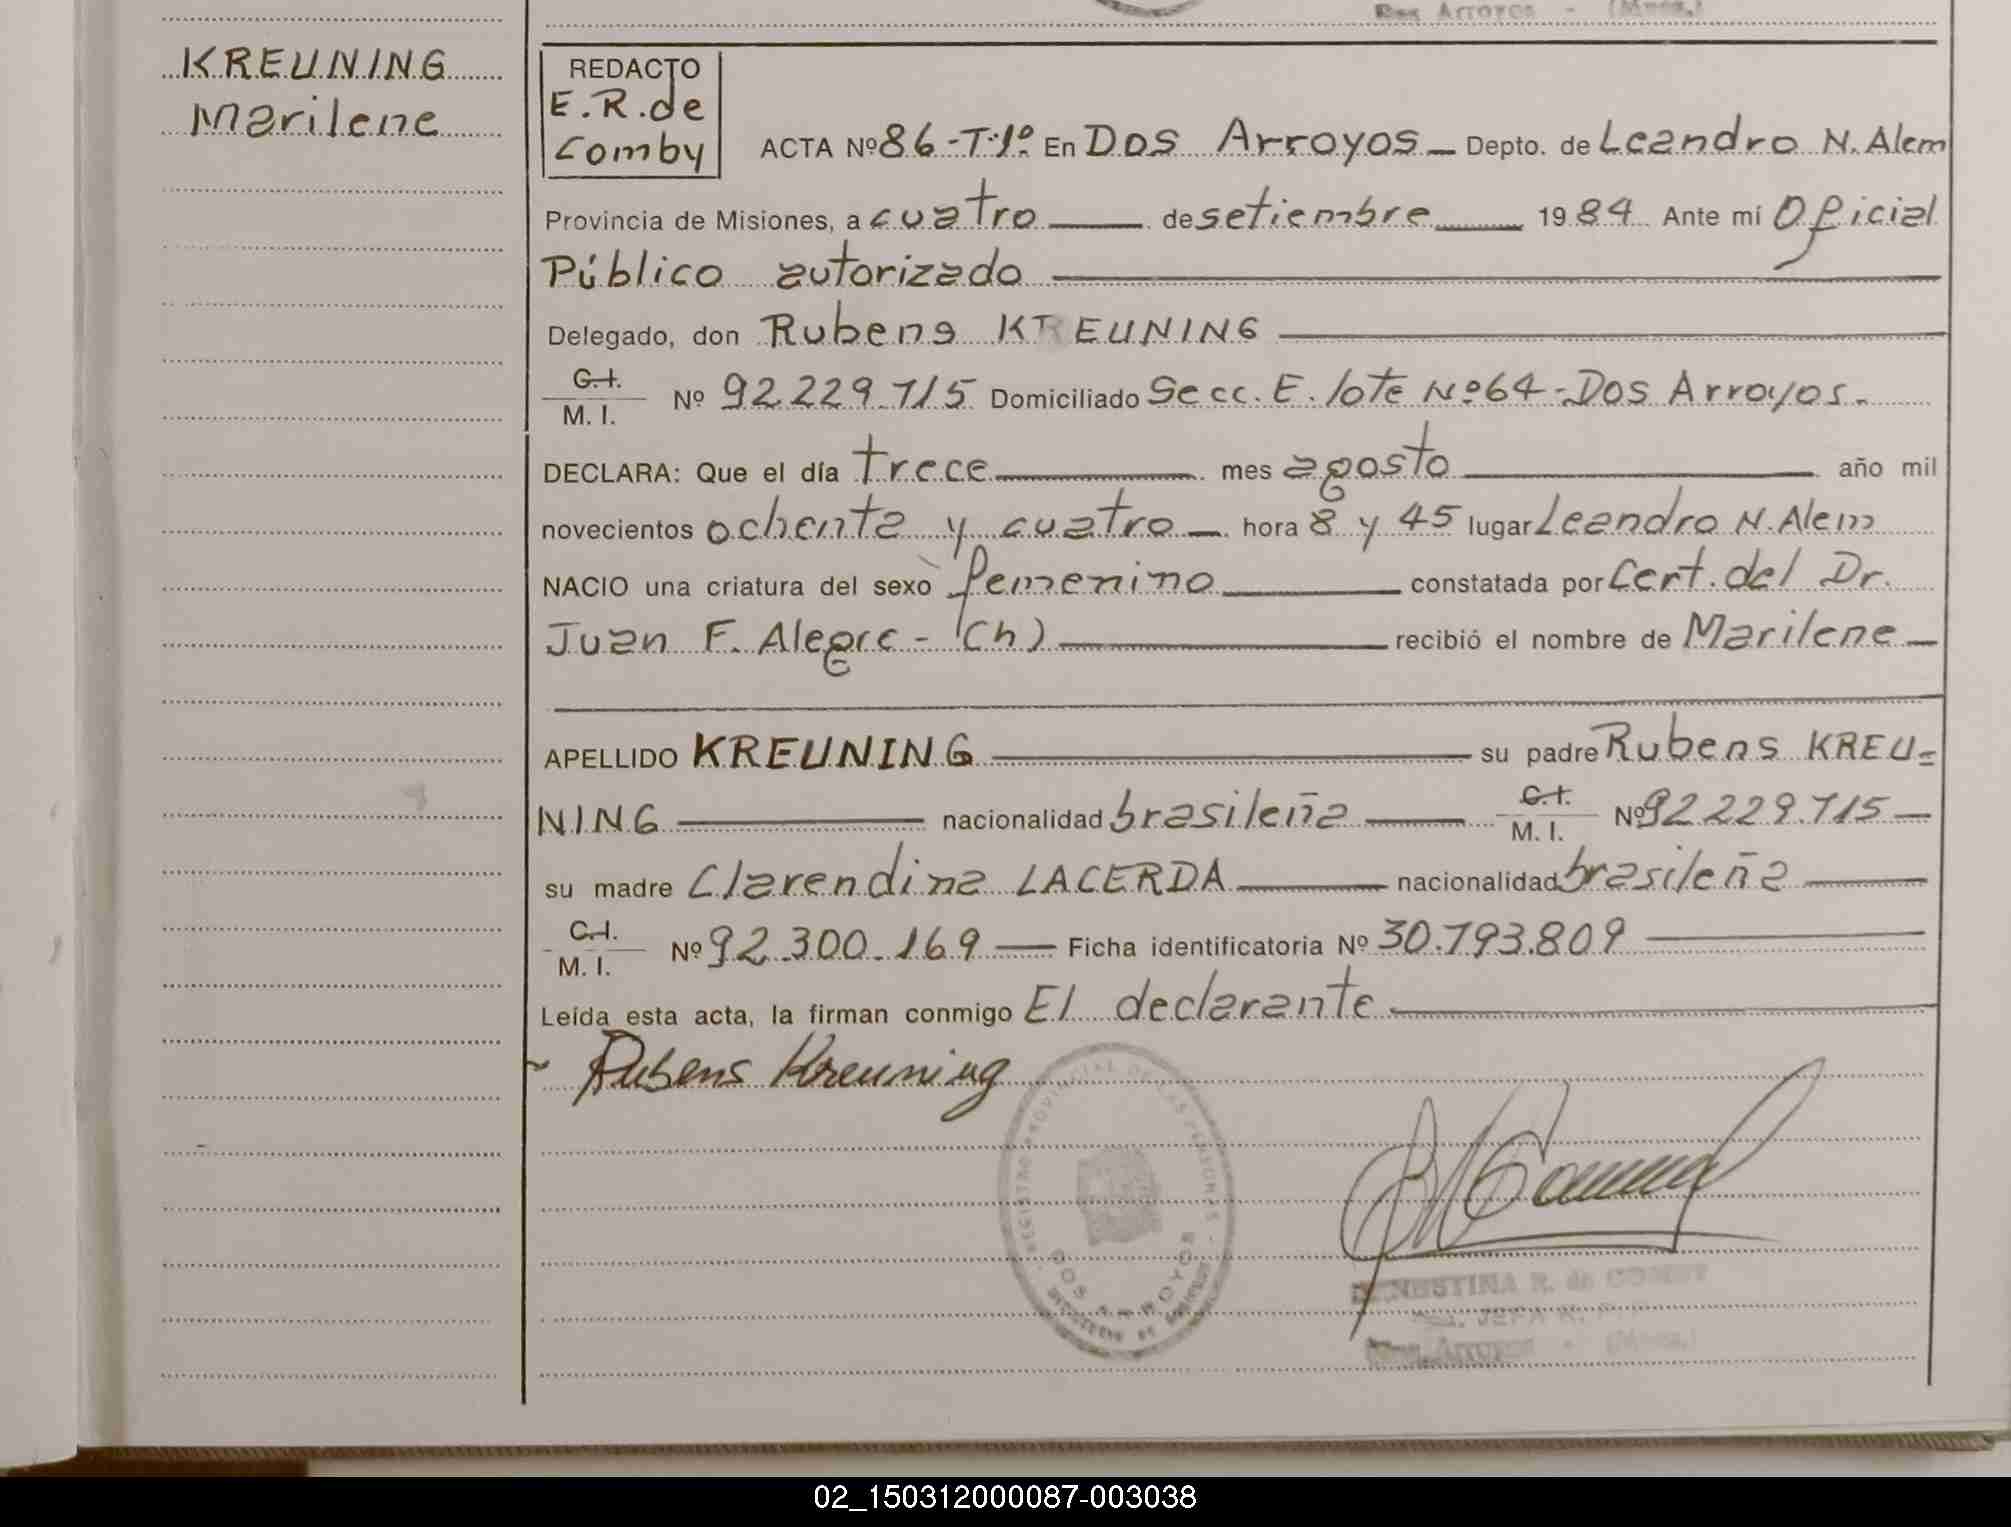 Dos Arroyos - (Mnes.)
KREUNING
Marilene
REDACTO
E.R.de
Comby
ACTA Nº 86-T.1º. En Dos Arroyos — Depto. de Leandro N. Alem
Provincia de Misiones, a cuatro de setiembre 1984 Ante mí Oficial
Público autorizado
Delegado, don Rubens KREUNING
C.I.
M. I. Nº 92.229.715 Domiciliado Secc. E. lote Nº 64-Dos Arroyos.
DECLARA: Que el día trece mes agosto año mil
novecientos ochenta y cuatro — hora 8 y 45 lugar Leandro N. Alem
NACIO una criatura del sexo femenino constatada por Cert. del Dr.
Juan F. Alegre - (Ch) recibió el nombre de Marilene —
APELLIDO KREUNING su padre Rubens KREU=
NING nacionalidad brasileña C.I. M. I. Nº 92.229.715 —
su madre Clarendina LACERDA nacionalidad brasileña
C.I.
M. I. Nº 92.300.169 — Ficha identificatoria Nº 30.793.809
Leída esta acta, la firman conmigo El declarante
Rubens Kreuning
REGISTRO PROVINCIAL DE LAS PERSONAS
DOS ARROYOS
R. de COMBY
JEFA
Dos Arroyos - (Mnes.)
02_150312000087-003038